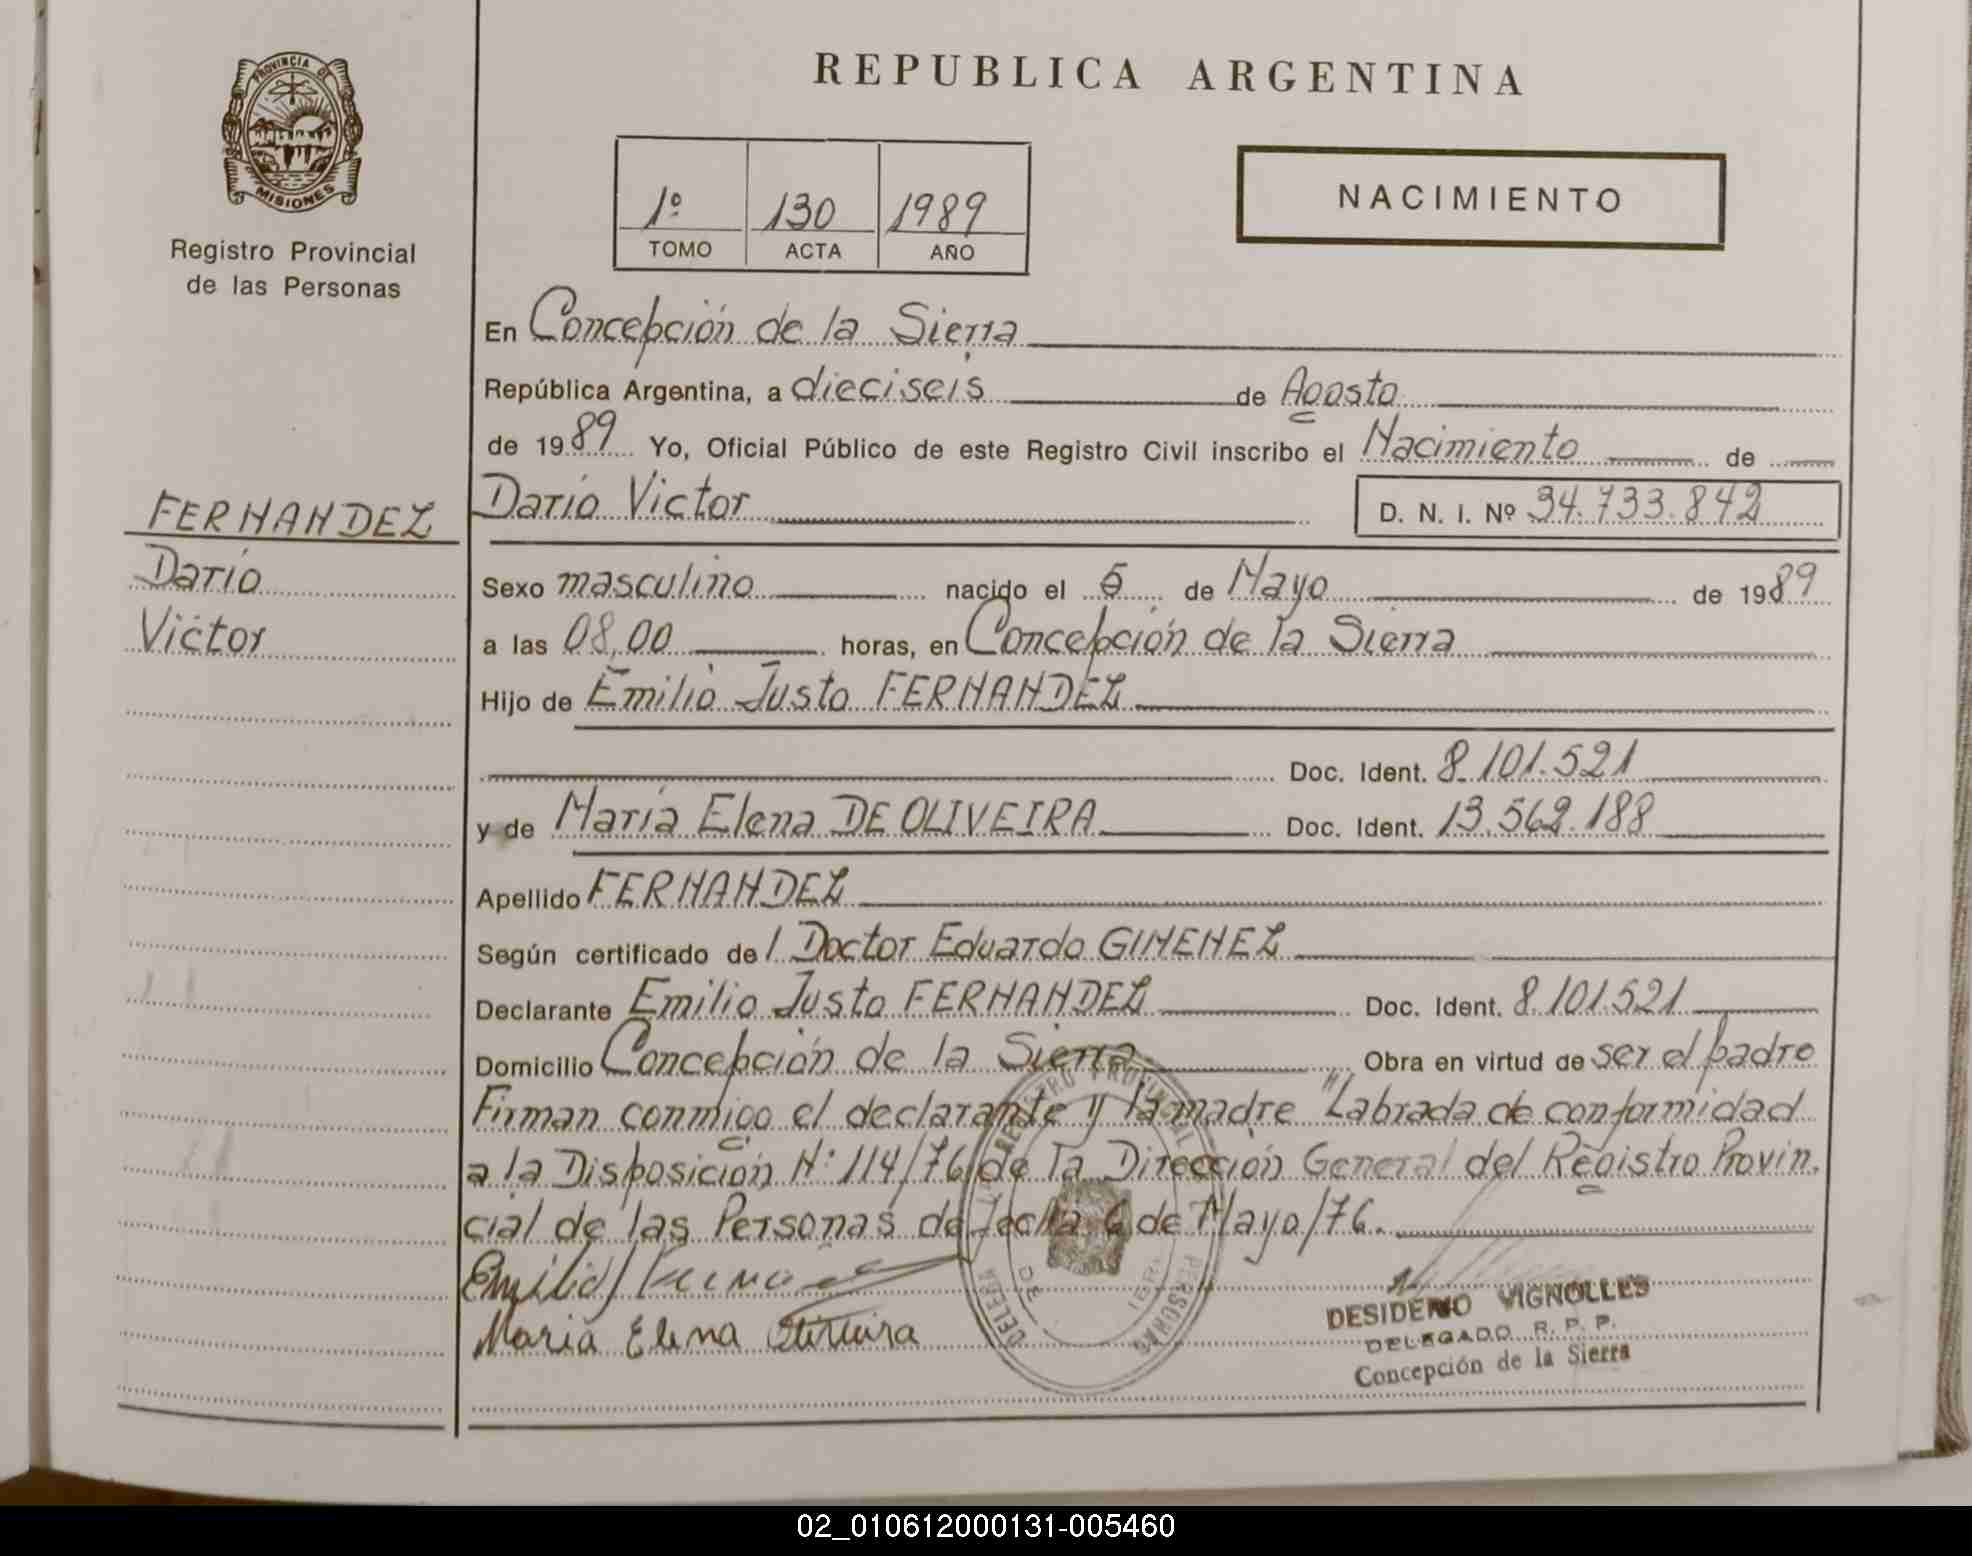 PROVINCIA DE
MISIONES
Registro Provincial
de las Personas
REPUBLICA ARGENTINA
1º 130 1989
TOMO ACTA AÑO
NACIMIENTO
En Concepción de la Sierra
República Argentina, a dieciseis de Agosto
de 1989 Yo, Oficial Público de este Registro Civil inscribo el Nacimiento de
Darío Victor D. N. I. Nº 34.733.842
FERNANDEZ
Darío
Victor
Sexo masculino nacido el 5 de Mayo de 1989
a las 08,00 horas, en Concepción de la Sierra
Hijo de Emilio Justo FERNANDEZ
Doc. Ident. 8.101.521
y de María Elena DE OLIVEIRA Doc. Ident. 13.562.188
Apellido FERNANDEZ
Según certificado del Doctor Eduardo GIMENEZ
Declarante Emilio Justo FERNANDEZ Doc. Ident. 8.101.521
Domicilio Concepción de la Sierra Obra en virtud de ser el padre
Firman conmigo el declarante y la madre "Labrada de conformidad
a la Disposición N: 114/76 de la Dirección General del Registro Provin.
cial de las Personas de fecha 6 de Mayo/76.
Emilio J
Maria Elena
REGISTRO PROVINCIAL
PERSONAS
DESIDERIO VIGNOLLES
DELEGADO R. P. P.
Concepción de la Sierra
02_010612000131-005460